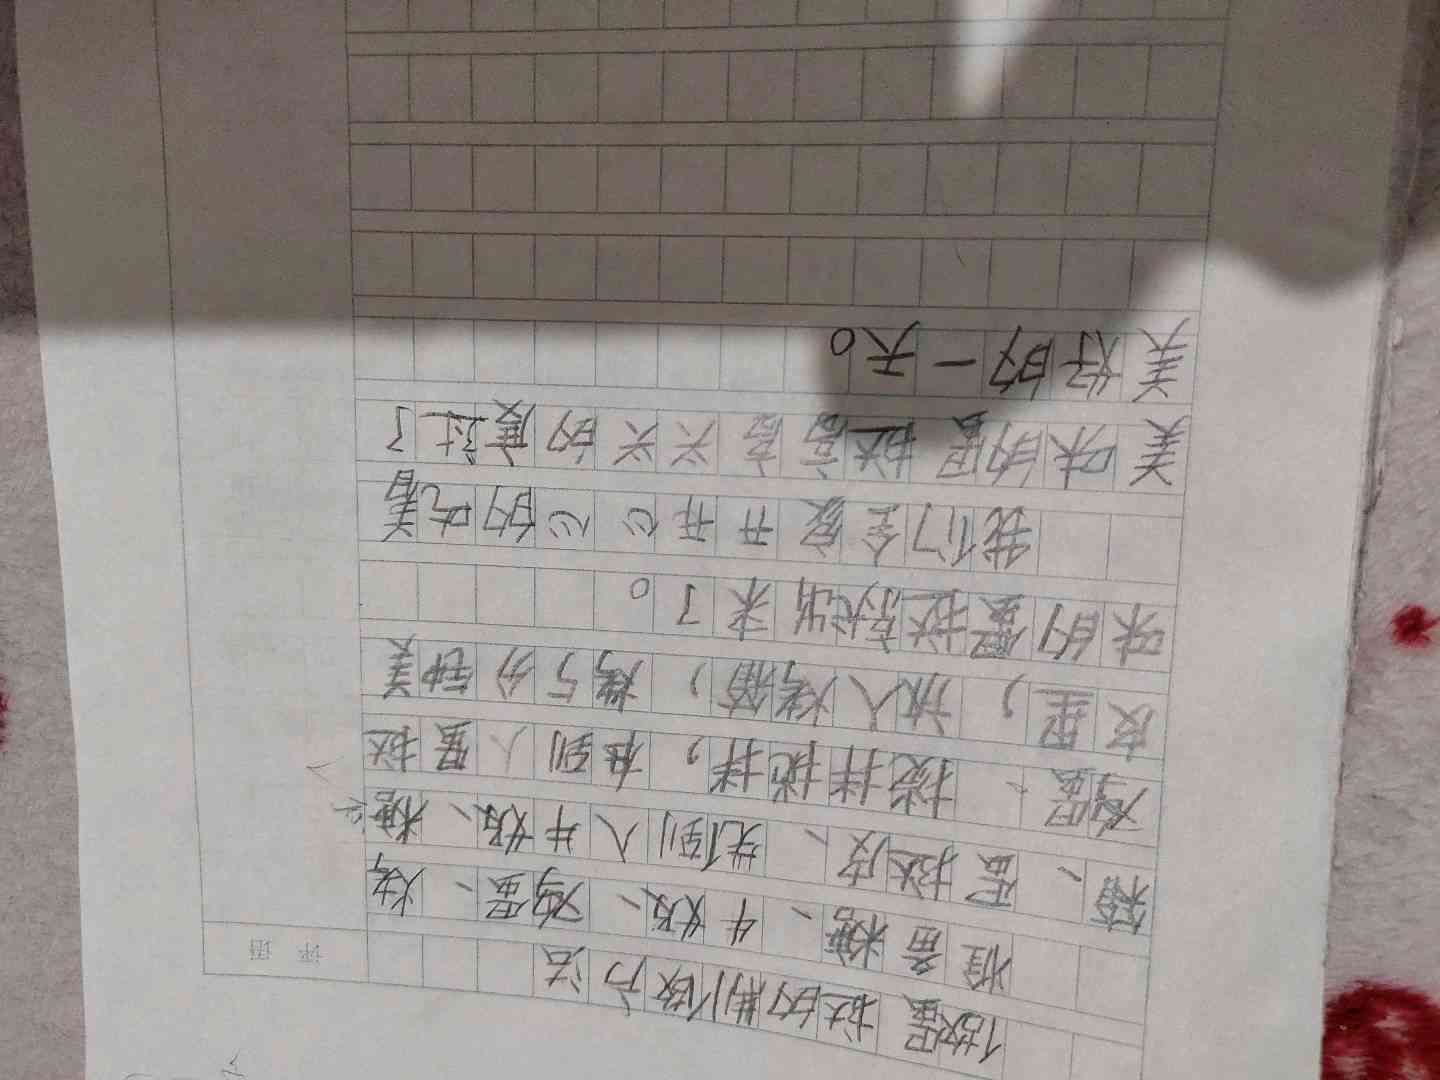 评语
做蛋挞的制做方法
准备糖、牛奶、鸡蛋、烤
箱、蛋挞皮、先到入牛奶、糖、
鸡蛋、搅拌搅拌,在到入蛋挞
皮里,放入烤箱,烤5分钟美
味的蛋挞就出来了。
我们全家开开心心的吃着
美味的蛋挞高高兴兴的度过了
美好的一天。